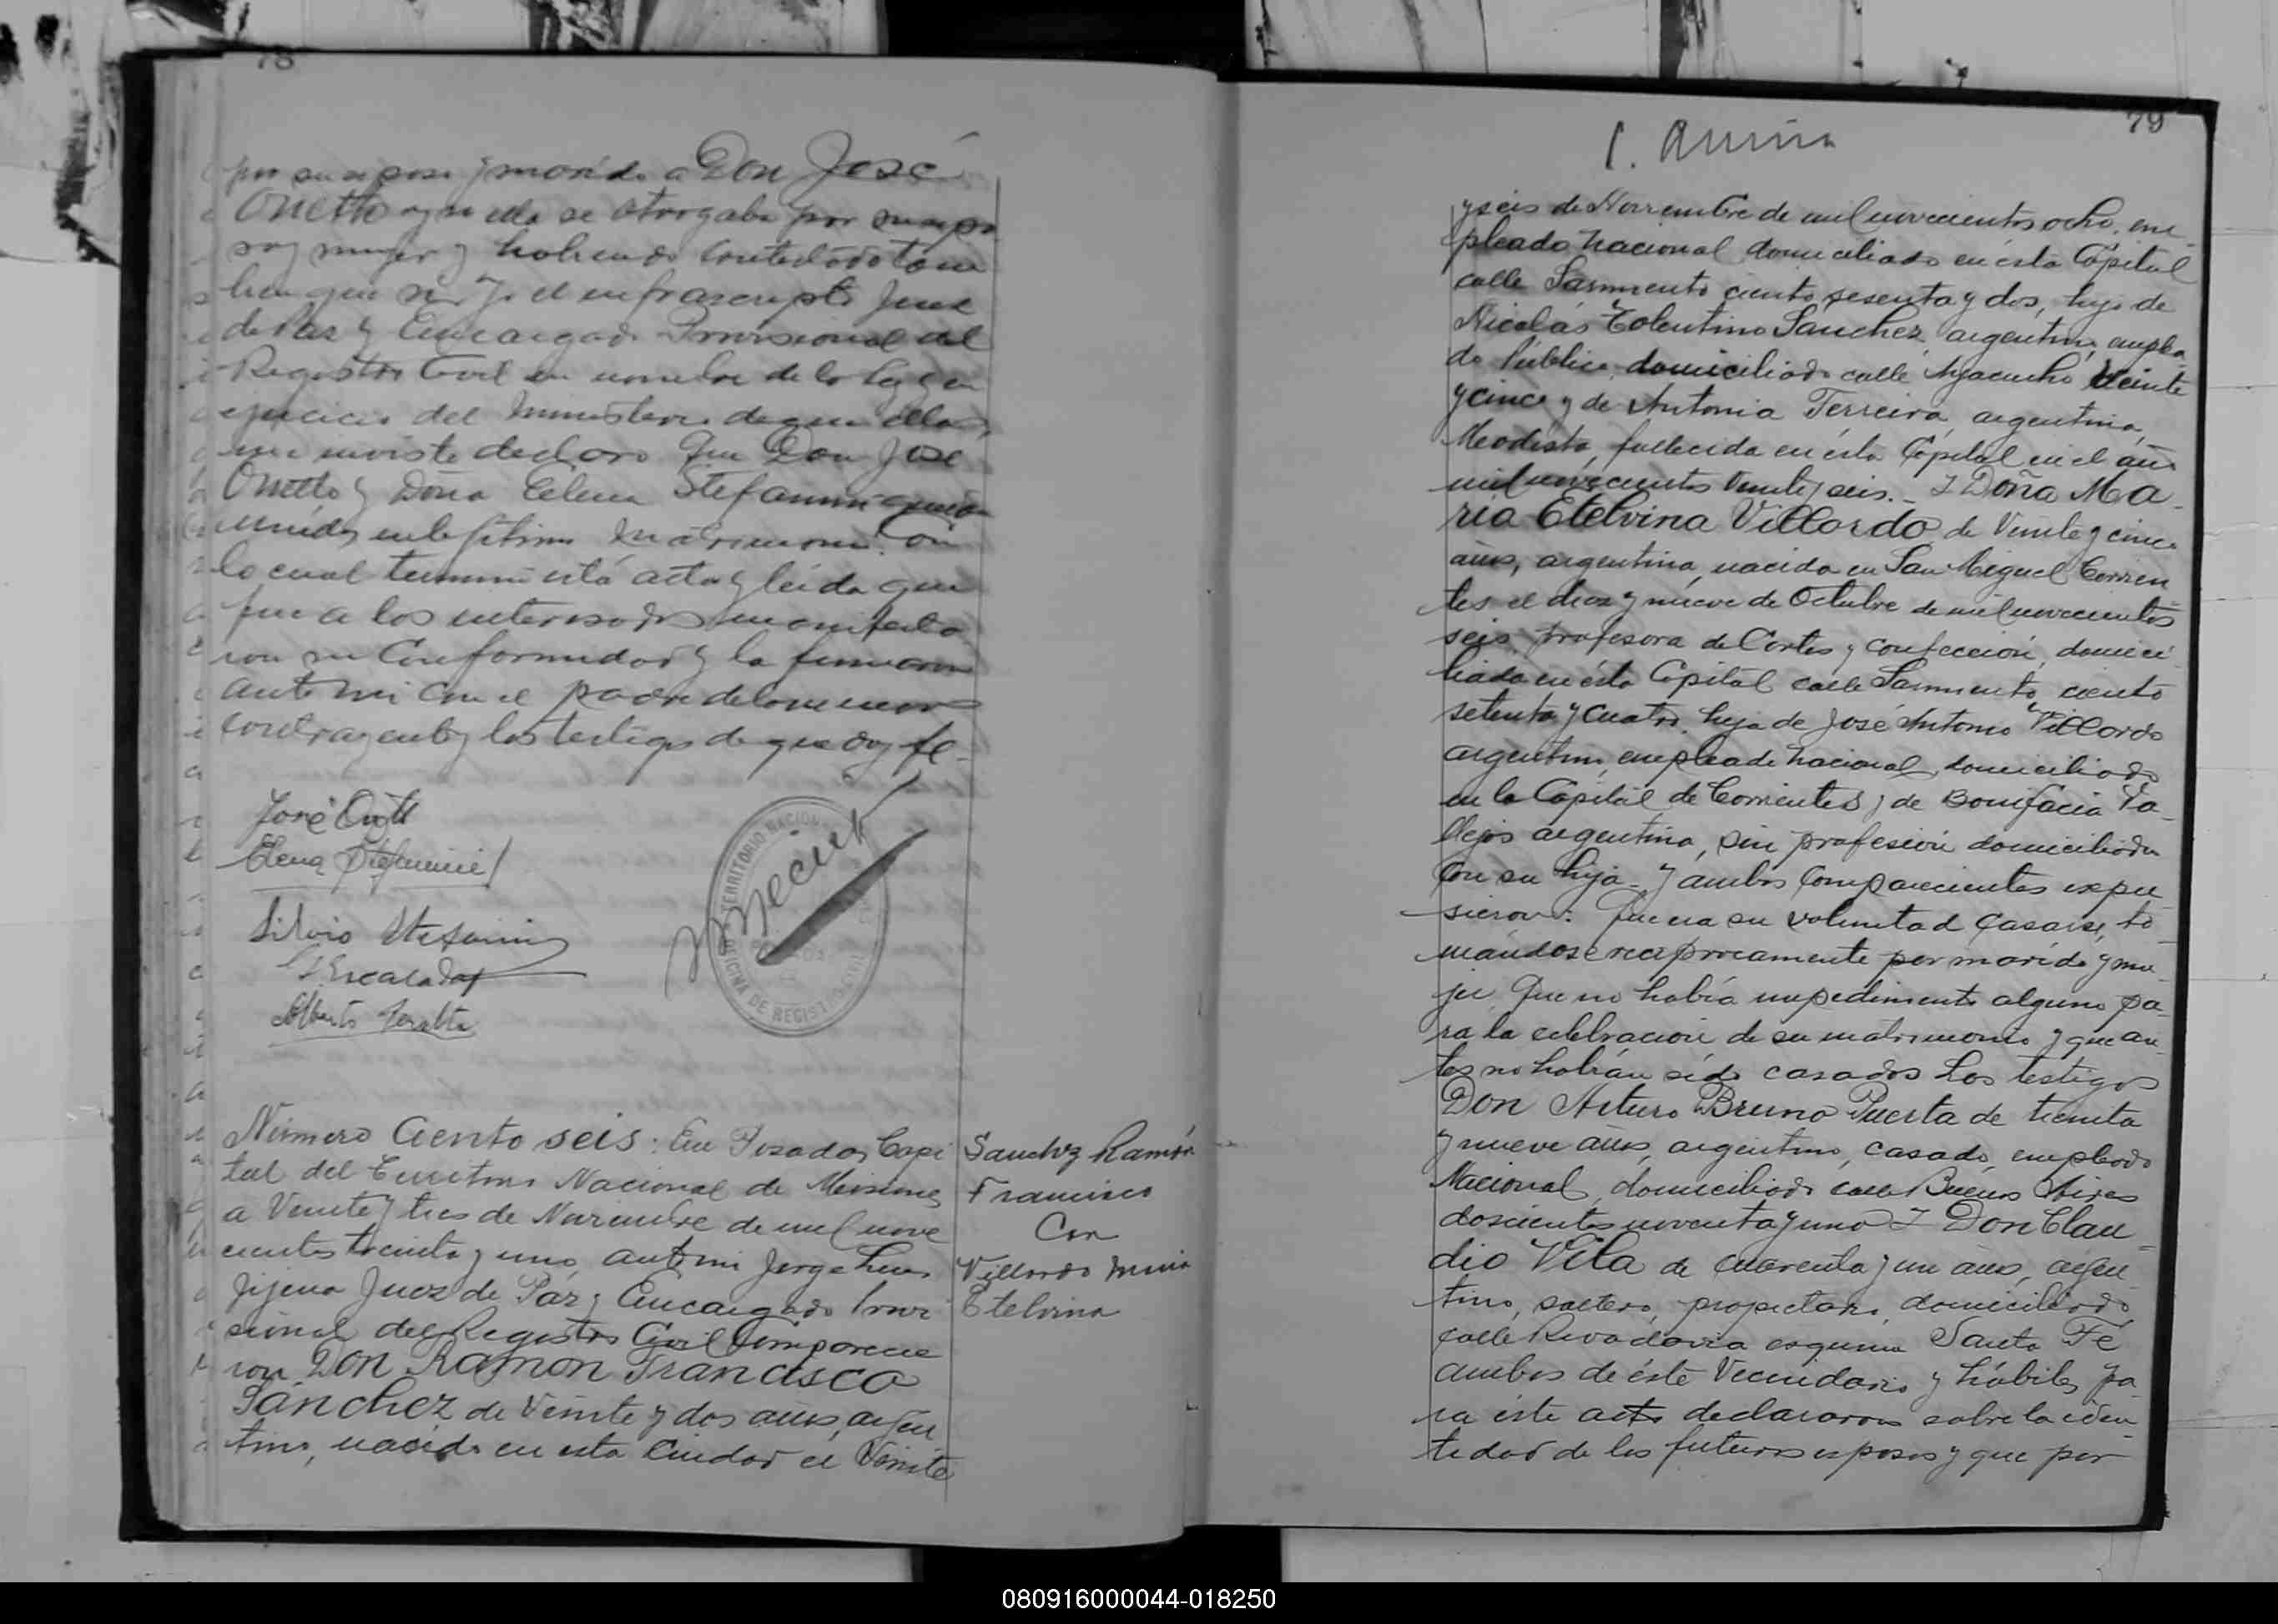 78
por su esposo y marido a Don José
Onetto y si ella se otorgaba por su espo
sa y mujer y habiendo contestado tam
bien que si. Yo el infrascripto Juez
de Paz y Encargado Provisional del
Registro Civil en nombre de la ley y en
ejercicio del Ministerio de que ella
me inviste declaro Que Don José
Onetto y Doña Elena Stefanini quedan
unidos en lejítimo matrimonio. Con
lo cual terminó ésta acta y leida que
fue a los interesados manifesta
ron su conformidad y la firmaron
ante mi con el padre de la menor
contrayente y los testigos de que doy fé.
José Onetto
Elena Stefanini
Silvio Stefanini
Escalada
Alberto Peralta
TERRITORIO NACIONAL
OFICINA DE REGISTRO CIVIL
Número Ciento seis: En Posadas Capi
tal del Territorio Nacional de Misiones
a Veinte y tres de Noviembre de mil nove
cientos treinta y uno, ante mi Jorge Luis
Jijena Juez de Paz y Encargado Provi
sional del Registro Civil Comparecie
ron Don Ramon Francisco
Sánchez de Veinte y dos años, argen
tino, nacido en esta Ciudad el Veinte
Sanchez Ramón
Francisco
Con
Villordo Maria
Etelvina
79
y seis de Noviembre de mil novecientos ocho, em
pleado nacional domiciliado en ésta Capital
calle Sarmiento ciento sesenta y dos, hijo de
Nicolás Tolentino Sánchez argentino, emplea
do Público, domiciliado calle Ayacucho Veinte
y cinco y de Antonia Ferreira, argentina,
Modista, fallecida en ésta Capital en el año
mil novecientos veinte y seis. - Y Doña Ma
ria Etelvina Villordo de Veinte y cinco
años, argentina, nacida en San Miguel Corrien
tes el diez y nueve de Octubre de mil novecientos
seis, profesora de Cortes y confección, domici
liada en ésta Capital calle Sarmiento ciento
setenta y cuatro, hija de José Antonio Villordo
argentino, empleado nacional, domiciliado
en la Capital de Corrientes y de Bonifacia Va
llejos argentina, sin profesión domiciliada
con su hija. Y ambos comparecientes expu
sieron: Que era su voluntad casarse, to
mándose reciprocamente por marido y mu
jer Que no había impedimento alguno pa
ra la celebración de su matrimonio y que an
tes no habían sido casados Los testigos
Don Arturo Bruno Puerta de treinta
y nueve años, argentino, casado, empleado
Nacional, domiciliado calle Buenos Aires
doscientos noventa y uno Y Don Clau
dio Vila de cuarenta y un años, argen
tino, soltero, propietario, domiciliado
calle Rivadavia esquina Santa Fé
ambos de éste Vecindario y hábiles pa
ra éste acto declararon sobre la iden
tidad de los futuros esposos y que por
080916000044-018250